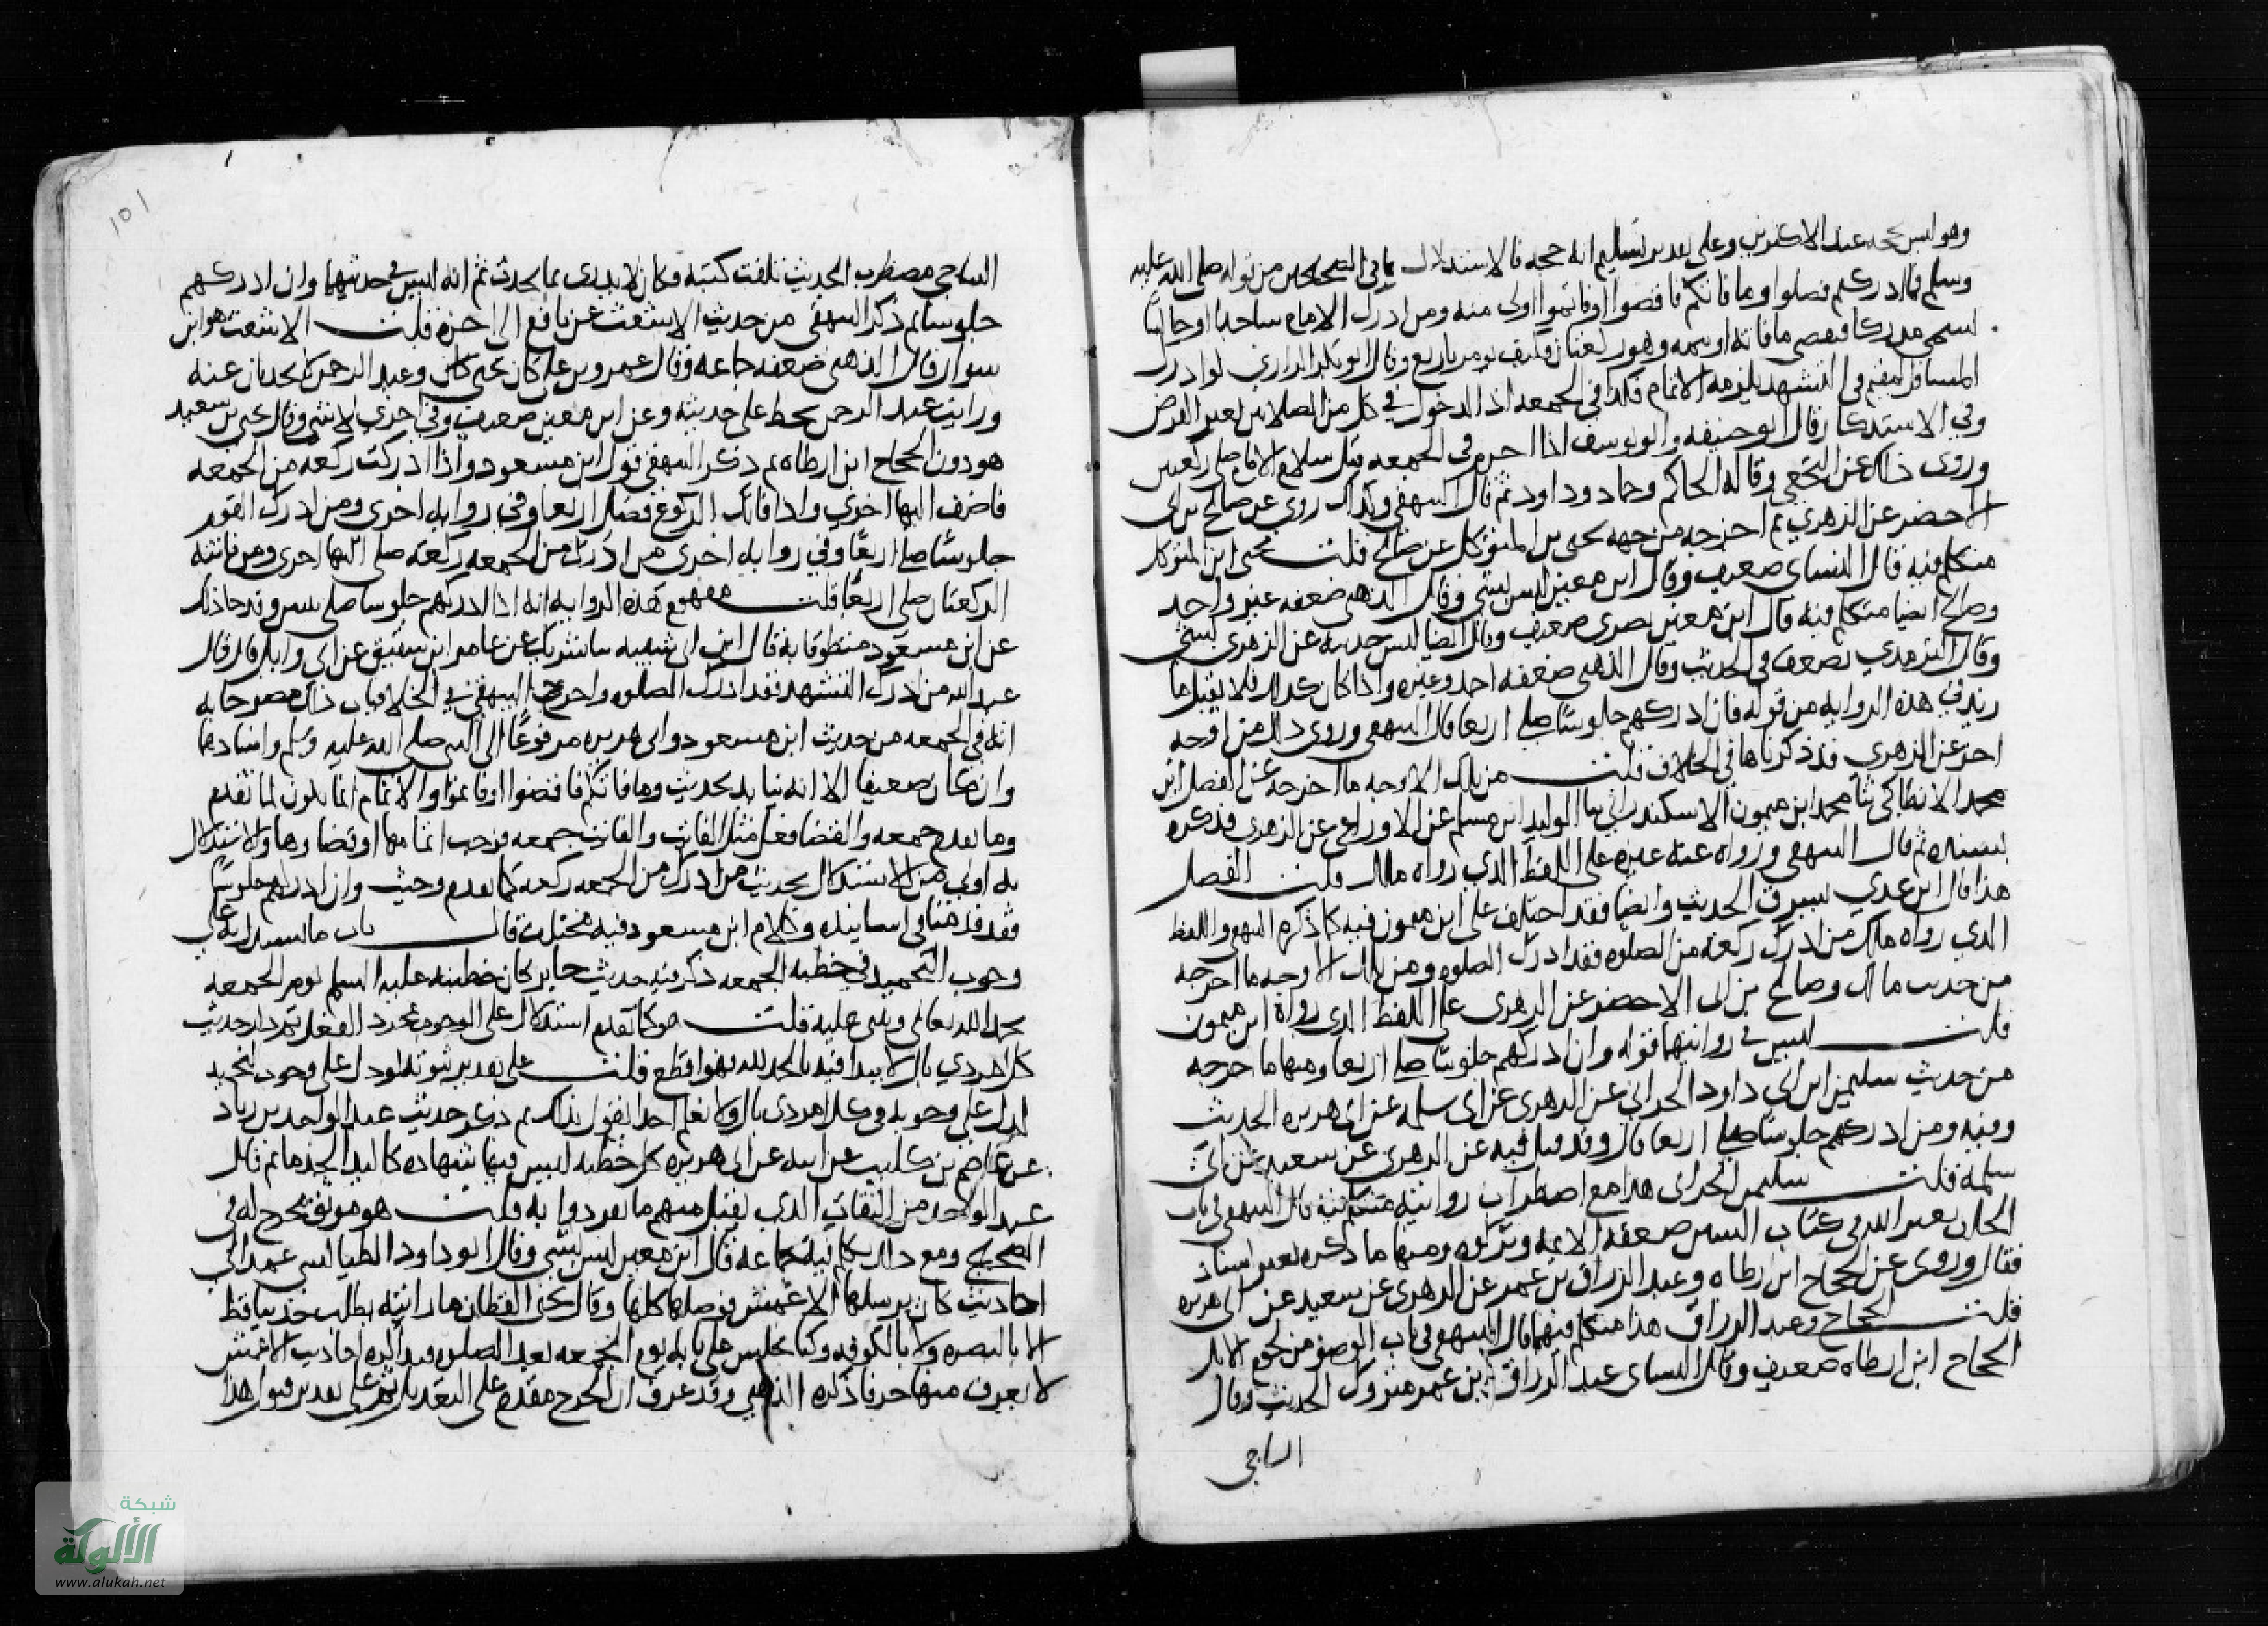 وهو ليس بحجه عند الاكثرين وعلى تقدير تسليم انه حجه فالاستدلال بما في الصحيحين من قوله صلى الله عليه
وسلم فما ادركتم فصلوا وما فاتكم فاقضوا او فاتموا اولى منه ومن ادرك الامام ساجدا او جالسا
يسمى مدركا فيقضي ما فاته او يتمه وهو ركعتان فكيف يومر باربع وقال ابو بكر الرازي لو ادرك
المسافر المقيم في التشهد يلزمه الاتمام فكذا في الجمعه اذ الدخول في كل من الصلاتين لغير الفرض
وفي الاستذكار قال ابو حنيفه وابو يوسف اذا احرم في الجمعه قبل سلام الامام صلى ركعتين
وروى ذلك عن النخعي وقاله الحاكم وحماد وداود ثم قال البيهقي وكذلك روي عن صالح بن ابي
الاخضر عن الزهري ثم اخرجه من جهه يحيى بن المتوكل عن صالح قلت يحيى ابن المتوكل
متكلم فيه قال النساى ضعيف وقال ابن معين ليس بشي وقال الذهبي ضعفه غير واحد
وصالح ايضا متكلم فيه قال ابن معين بصري ضعيف وقال ايضا ليس حديثه عن الزهري بشي
وقال الترمذي يضعف في الحديث وقال الذهبي ضعفه احمد وغيره واذا كان كذلك فلا يقبل ما
زيد في هذه الروايه من قوله فان ادركهم جلوسا صلى اربعا قال البيهقي وروي ذلك من اوجه
اخر عن الزهري قد ذكرناها في الخلاف قلت من تلك الاوجه ما اخرجه عن الفضل ابن
محمد الانطاكي ثنا محمد ابن ميمون الاسكندراني ثنا الوليد ابن مسلم عن الاوزاعي عن الزهري فذكره
بسنده ثم قال البيهقي ورواه عنه غيره على اللفظ الذي رواه مالك قلت الفضل
هذا قال ابن عدي يسرق الحديث وايضا فقد اختلف على ابن ميمون فيه كما ذكره البيهقي واللفظ
الذي رواه مالك من ادرك ركعه من الصلوه فقد ادرك الصلوه ومن تلك الاوجه ما اخرجه
من حديث مالك وصالح بن ابي الاخضر عن الزهري على اللفظ الذي رواه ابن ميمون
قلت ليس في روايتهما قوله وان ادركهم جلوسا صلى اربعا ومنها ما خرجه
من حديث سليمن ابن ابي داود الحراني عن الزهري عن ابي سلمه عن ابي هريره الحديث
وفيه ومن ادركهم جلوسا صلى اربعا قال وقد قيل فيه عن الزهري عن سعيد عن ابي
سلمه قلت سليمن الحراني هذا مع اضطراب روايته متكلم فيه قال البيهقي في باب
الحلف بغير الله في كتاب السنن ضعفه الايمه وتركوه ومنها ما ذكره بغير اسناد
فقال وروى عن الحجاج ابن ارطاه وعبد الرزاق بن عمر عن الزهري عن سعيد عن ابي هريره
قلت الحجاج وعبد الرزاق هذا متكلم فيهما قال البيهقي في باب الوضو من لحوم الابل
الحجاج ابن ارطاه ضعيف وقال النساى عبد الرزاق ابن عمر متروك الحديث وقال
الساجي
١٥١
الساجي مضطرب الحديث تلفت كتبه وكان لا يدرى بما يحدث ثم انه ليس في حديثهما وان ادركهم
جلوسا ثم ذكر البيهقي من حديث الاشعث عن نافع الى اخره قلت الاشعث هو ابن
سوار قال الذهبي ضعفه جماعه وقال عمرو بن علي كان يحيى وعبد الرحمن لا يحدثان عنه
ورايت عبد الرحمن يخط على حديثه وعن ابن معين ضعيف وفي اخرى لا شي وقال يحيى بن سعيد
هو دون الحجاج ابن ارطاه ثم ذكر البيهقي قول ابن مسعود واذا ادركت ركعه من الجمعه
فاضف اليها اخري واذا فاتك الركوع فصل اربعا وفي روايه اخرى ومن ادرك القوم
جلوسا صلى اربعا وفي روايه اخرى من ادرك من الجمعه ركعه صلى اليها اخرى ومن فاتته
الركعتان صلى اربعا قلت مفهوم هذه الروايه انه اذا ادركهم جلوسا صلى ثنتين وقد جا ذلك
عن ابن مسعود منطوقا به قال ابن ابي شيبه ثنا شريك عن عامر ابن شقيق عن ابي وايل قال قال
عبد الله من ادرك التشهد فقد ادرك الصلوه واخرج البيهقي في الخلافيات ذلك مصرحا به
انه في الجمعه من حديث ابن مسعود وابي هريره مرفوعا الى النبي صلى الله عليه وسلم واسنادهما
وان كان ضعيفا الا انه يتايد بحديث وما فاتكم فاقضوا او فاتموا والاتمام انما يكون لما تقدم
وما تقدم جمعه والقضا فعل مثل الفائت والفائت جمعه فوجب اتمامها او قضاوها والاستدلال
به اولى من الاستدلال بحديث من ادرك من الجمعه ركعه كما تقدم وحديث وان ادركهم جلوسا
فقد قدمنا في اسانيده وكلام ابن مسعود فيه مختلف قال باب ما يستدل به على
وجوب التحميد في خطبه الجمعه ذكر فيه حديث جابر كان خطبته عليه السلم يوم الجمعه
يحمد الله تعالى ويثني عليه قلت هو كما تقدم استدلال على الوجوب بمجرد الفعل ثم ذكر حديث
كل امر ذي بال لا يبدا فيه بالحمد لله فهو اقطع قلت على تقدير ثبوته لو دل على وجوب التحميد
لدل على وجوبه في كل امر ذي بال ولا نعلم احدا يقول بذلك ثم ذكر حديث عبد الواحد بن زياد
عن عاصم بن كليب عن ابيه عن ابي هريره كل خطبه ليس فيها شهاده كاليد الجذماء ثم قال
عبد الواحد من الثقات الذي يقبل منهم ما تفردوا به قلت هو موثق مخرج له في
الصحيح ومع ذلك تكلم فيه جماعه قال ابن معين ليس بشي وقال ابو داود الطيالسي عمد الى
احاديث كان يرسلها الاعمش فوصلها كلها وقال يحيى القطان ما رايته يطلب حديثا قط
لا بالبصره ولا بالكوفه وكنا نجلس على بابه يوم الجمعه بعد الصلوه فنذاكره احاديث الاعمش
لا يعرف منها حرفا ذكره الذهبي وقد عرف ان الجرح مقدم على التعديل ثم على تقدير قبول هذا
شبكة
الألوكة
www.alukah.net